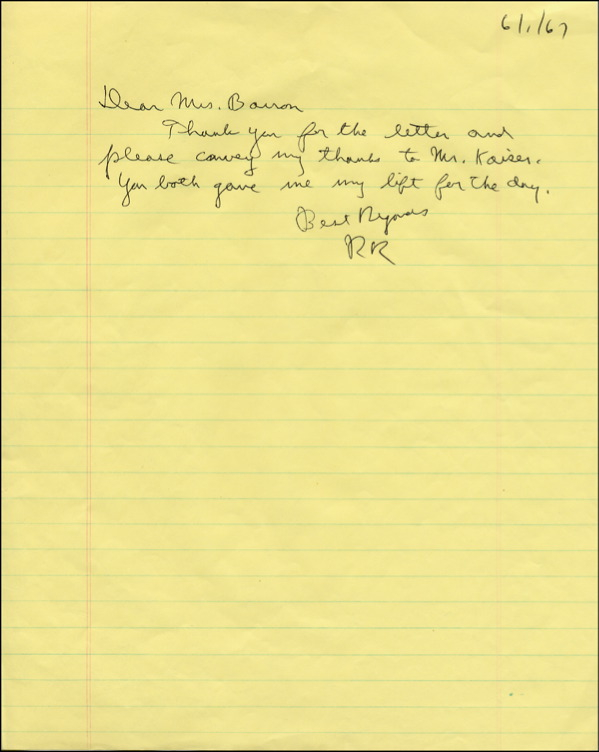 6/1/67
Dear Mrs. Barron
Thank you for the letter and
please convey my thanks to Mr. Kaiser.
You both gave me my lift for the day.
Best Regards
RR